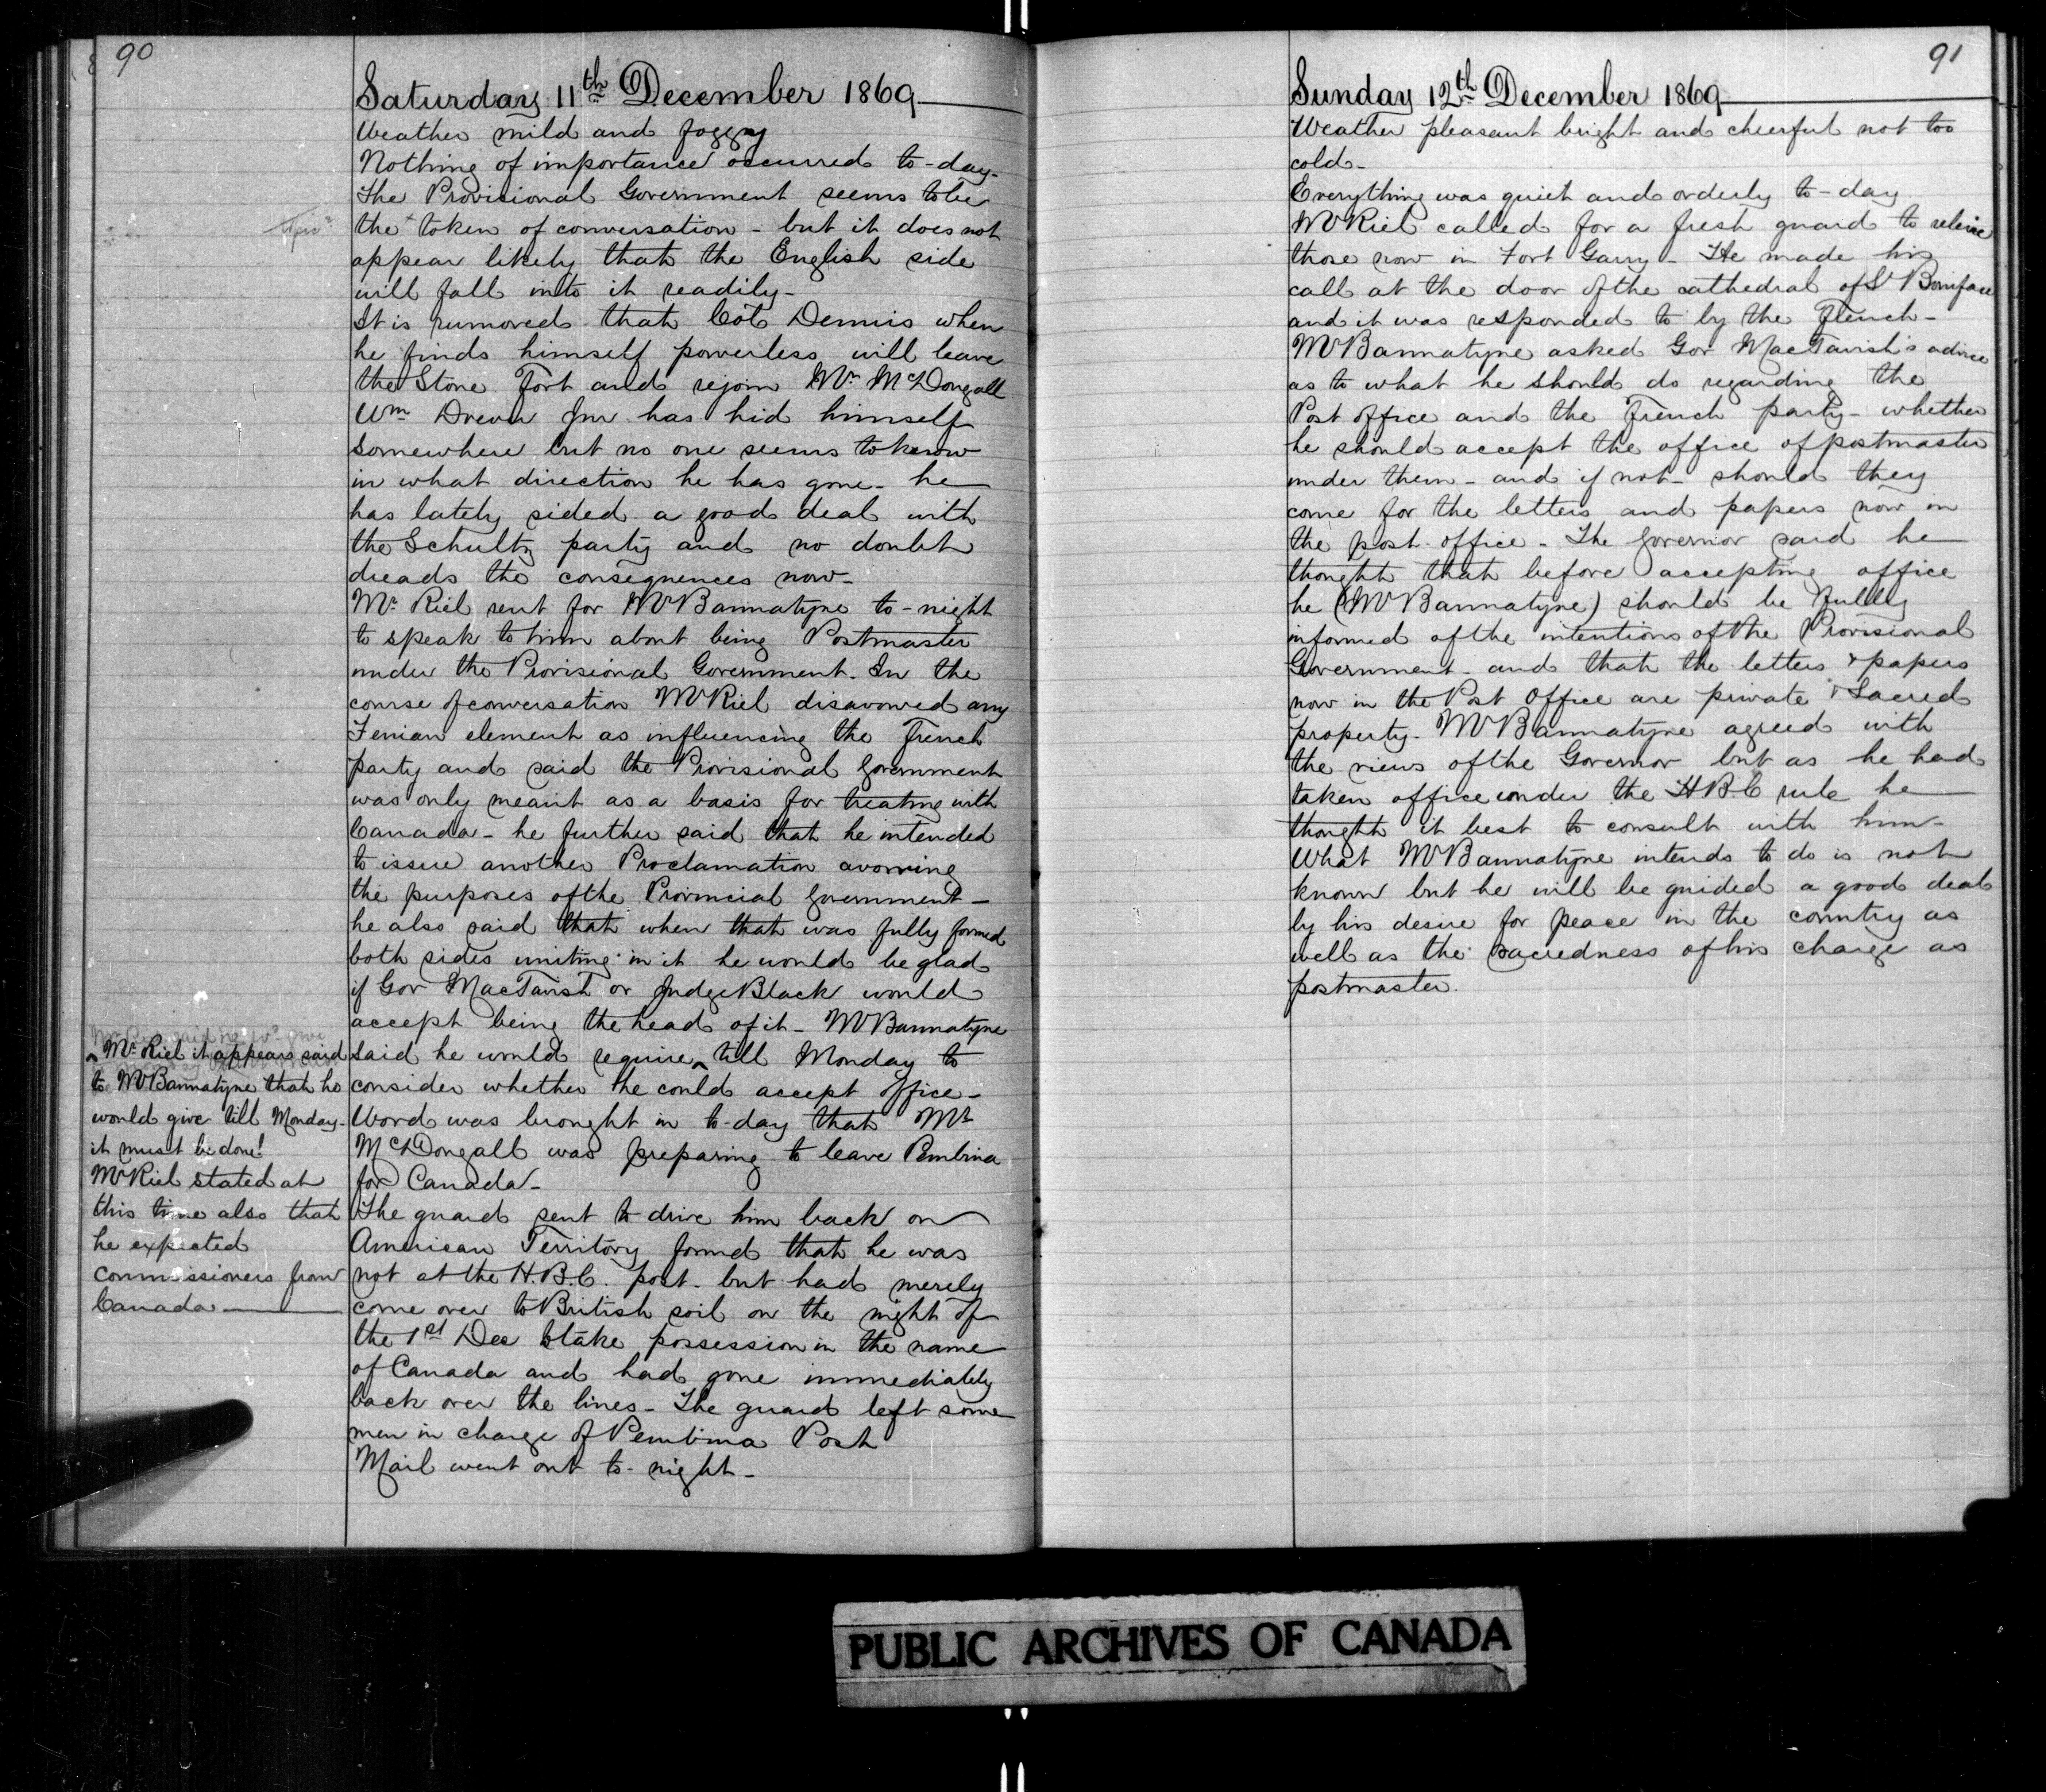 90
Saturday 11th December 1869
Weather mild and foggy
Nothing of importance occurred to-day-
The Provisional Government seems to be
the token of conversation - but it does not
appear likely that the English side
will fall into it readily-
It is rumored that Col Dennis when
he finds himself powerless will leave
the Stone Fort and rejoin Mr McDougall
Wm Drever Jnr has hid himself
somewhere but no one seems to know
in what direction he has gone - he
has lately sided a good deal with
the Schultz party and no doubt
dreads the consequences now-
Mr Riel sent for Mr Bannatyne to-night
to speak to him about being Postmaster
under the Provisional Government. In the
course of conversation Mr Riel disavowed any
Fenian element as influencing the French
party and said the Provisional Government
was only meant as a basis for treating with
Canada - he further said that he intended
to issue another Proclamation avowing
the purposes of the Provincial Government -
he also said that when that was fully formed
both sides uniting in it he would be glad
if Gov MacTavish or Judge Black would
accept being the head of it - Mr Bannatyne
said he would require ^ till Monday to
consider whether he could accept office -
Word was brought in to-day that Mr
McDougall was preparing to leave Pembina
for Canada -
The guard sent to drive him back on
American Territory found that he was
not at the H.B.C. post - but had merely
come over to British soil on the night of
the 1st Dec to take possession in the name
of Canada and had gone immediately
back over the lines - The guard left some
men in charge of Pembina Post
Mail went out to-night -
^ Mr Riel it appears said
to Mr Bannatyne that he
would give till Monday -
it must be done!
Mr Riel stated at
this time also that
he expected
commissioners from
Canada
91
Sunday 12th December 1869
Weather pleasant bright and cheerful not too
cold -
Everything was quiet and orderly to-day
Mr Riel called for a fresh guard to releive
those now in Fort Garry - He made his
call at the door of the cathedral of St Boniface
and it was responded to by the French -
Mr Bannatyne asked Gov MacTavish's advice
as to what he should do regarding the
Post office and the French party - whether
he should accept the office of postmaster
under them - and if not - should they
come for the letters and papers now in
the post office - The Governor said he
thought that before accepting office
he (Mr Bannatyne) should be fully
informed of the intentions of the Provisional
Government - and that the letters & papers
now in the Post Office are private & sacred
property - Mr Bannatyne agreed with
the views of the Governor but as he had
taken office under the H.B.C rule he
thought it best to consult with him -
What Mr Bannatyne intends to do is not
known but he will be guided a good deal
by his desire for peace in the country as
well as the sacredness of his charge as
postmaster.
PUBLIC ARCHIVES OF CANADA